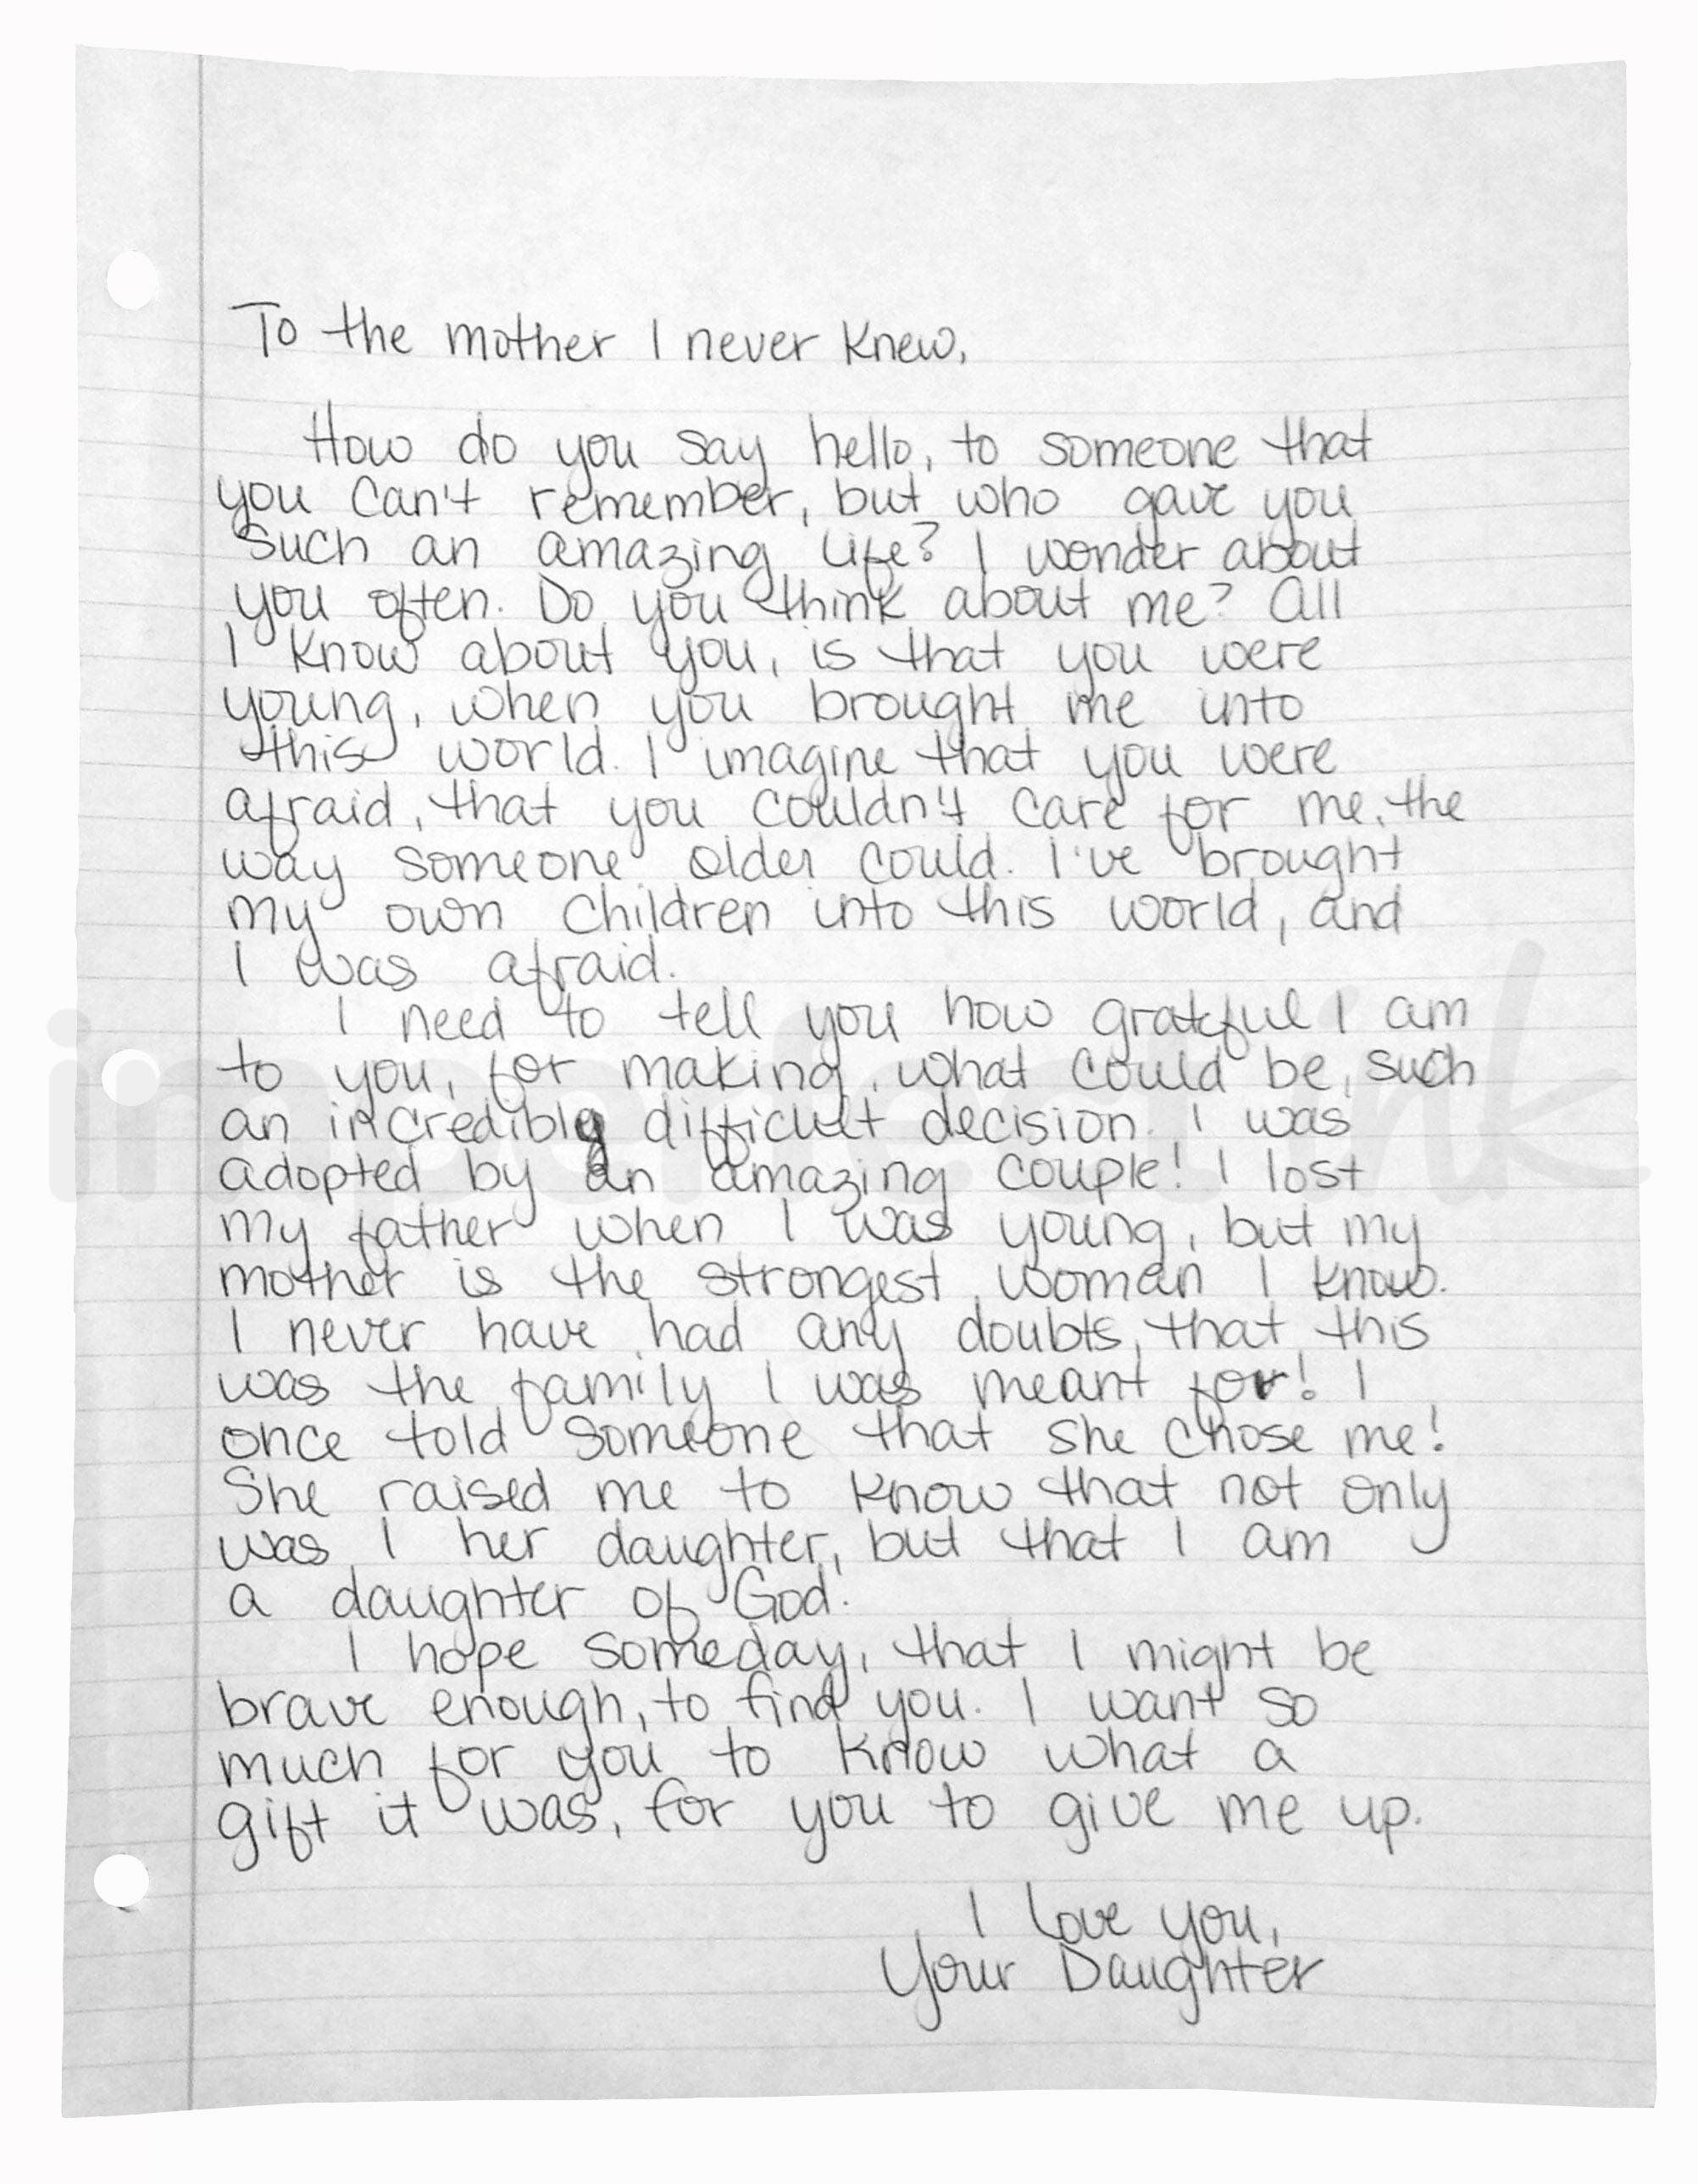 To the mother I never knew,
How do you say hello, to someone that
you can't remember, but who gave you
such an amazing life? I wonder about
you often. Do you think about me? All
I know about you, is that you were
young, when you brought me into
this world. I imagine that you were
afraid, that you couldn't care for me, the
way someone older could. I've brought
my own children into this world, and
I was afraid.
I need to tell you how grateful I am
to you, for making, what could be, such
an incredibly difficult decision. I was
adopted by an amazing couple! I lost
my father when I was young, but my
mother is the strongest woman I know.
I never have had any doubts, that this
was the family I was meant for! I
once told someone that she chose me!
She raised me to know that not only
was I her daughter, but that I am
a daughter of God.
I hope someday, that I might be
brave enough, to find you. I want so
much for you to know what a
gift it was, for you to give me up.
I love you,
Your Daughter